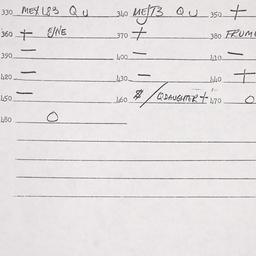 330 MEX183 Q U 340 MEJ73 Q U 350 +
360 + S/NE 370 + 380 FRUM
390 — 400 — 410 —
420 — 430 — 440 +
450 — 460 $ / QDAUGHTER + 470 O
480 O